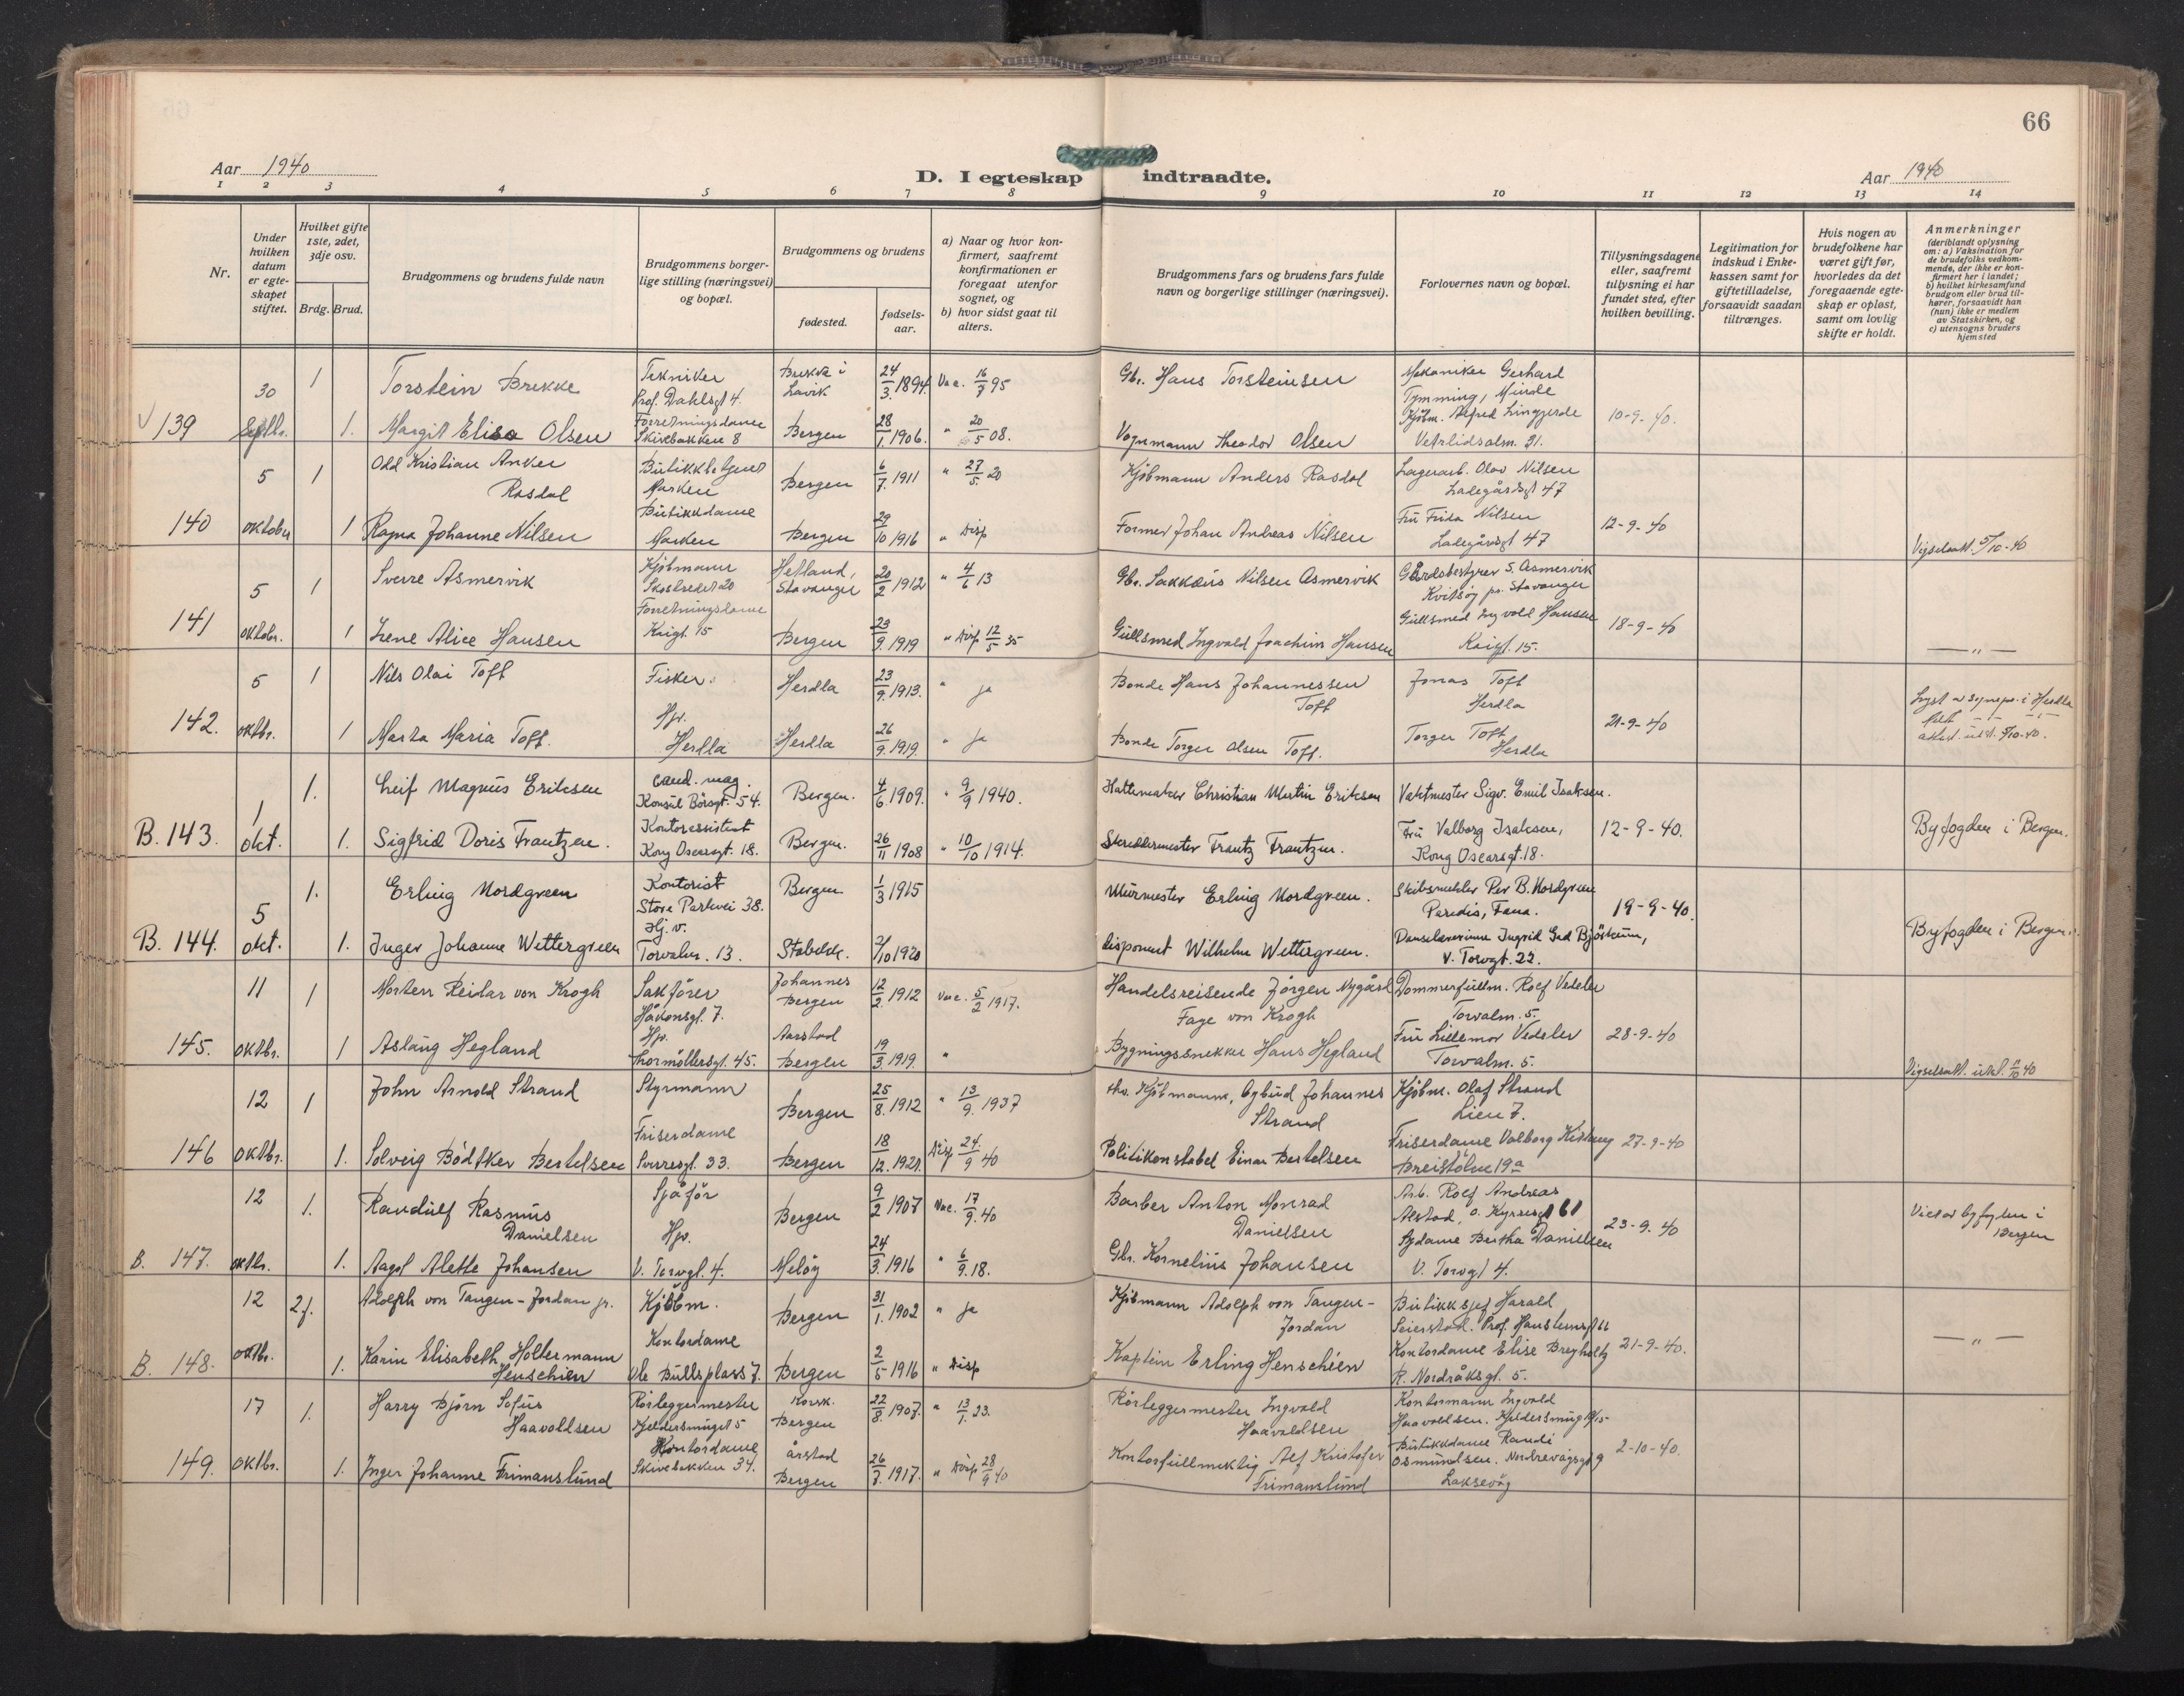 66
Aar 1940
D. I egteskap indtraadte.
Aar 1940
1 2 3 4 5 6 7 8 9 10 11 12 13 14
Nr.
Under hvilken datum er egteskapet stiftet.
Hvilket gifte 1ste, 2det, 3dje osv.
Brdg. Brud.
Brudgommens og brudens fulde navn
Brudgommens borgerlige stilling (næringsvei) og bopæl.
Brudgommens og brudens
fødested.
fødselsaar.
a) Naar og hvor konfirmert, saafremt konfirmationen er foregaat utenfor sognet, og
b) hvor sidst gaat til alters.
Brudgommens fars og brudens fars fulde navn og borgerlige stillinger (næringsvei).
Forlovernes navn og bopæl.
Tillysningsdagene eller, saafremt tillysning ei har fundet sted, efter hvilken bevilling.
Legitimation for indskud i Enkekassen samt for giftetilladelse, forsaavidt saadan tiltrænges.
Hvis nogen av brudefolkene har været gift før, hvorledes da det foregaaende egteskap er opløst, samt om lovlig skifte er holdt.
Anmerkninger
(deriblandt oplysning om: a) Vaksination for de brudefolks vedkommende, der ikke er konfirmert her i landet; b) hvilket kirkesamfund brudgom eller brud tilhører, forsaavidt han (hun) ikke er medlem av Statskirken, og c) utensogns bruders hjemsted
30 1 Torstein Brekke Tekniker Prof. Dahlsgt 4. Brekke i Lavik 24/3 1894 Vac. 16/7 95 Gbr. Hans Torsteinsen Mekaniker Gerhard Tymming, Minde
139 Septbr. 1. Margit Elisa Olsen Forretningsdame Skivebakken 8 Bergen 28/1 1906. " 20/5 08. Vognmann Theodor Olsen Kjøbm. Alfred Lingjerde Vetrlidsalm. 21. 10-9-40.
5 1 Odd Kristian Anker Rasdal Butikkbetjent Marken Bergen 6/7 1911 " 27/5 20 Kjøbmann Anders Rasdal Lagerarb. Olav Nilsen Ladegårdsgt 47
140 oktober 1 Ragna Johanne Nilsen Butikkdame Marken Bergen 29/10 1916 " Disp Former Johan Andreas Nilsen Fru Frida Nilsen Ladegårdsgt 47 12-9-40 Vigselsatt. 5/10-40
5 1 Sverre Asmervik Kjøbmann Skostredet 20 Hetland, Stavanger 20/2 1912 " 4/6 13 Gbr. Sakkæus Nilsen Asmervik Gårdsbestyrer S. Asmervik Kvitsøy pr. Stavanger
141 oktobr. 1 Irene Alice Hansen Forretningsdame Kaigt. 15 Bergen 23/9 1919 " Disp 12/5 35 Gullsmed Ingvald Joachim Hansen Gullsmed Ingvald Hansen Kaigt. 15. 18-9-40 — " —
5 1 Nils Olai Toft Fisker. Herdla 23/9 1913. " ja Bonde Hans Johannessen Toft Jonas Toft Herdla
142. oktbr. 1 Marta Maria Toft. Hp. Herdla Herdla 26/9 1919. " ja Bonde Torger Olsen Toft. Torger Toft Herdla 21-9-40 Lyst av sognepr. i Herdla
1. Leif Magnus Eriksen cand. mag. Konsul Børsgt. 54. Bergen. 4/6 1909. " 9/9 1940. Hattemaker Christian Martin Eriksen Vaktmester Sigv. Emil Isaksen.
B. 143. 1 okt. 1. Sigfrid Doris Frantzen. Kontorassistent Kong Oscarsgt. 18. Bergen. 26/11 1908 " 10/10 1914. Skreddermester Frantz Frantzen. Fru Valborg Isaksen, Kong Oscarsgt. 18. 12-9-40. Byfogden i Bergen.
1. Erling Nordgreen Kontorist Store Parkvei 38. Bergen 1/3 1915 Murmester Erling Nordgreen. Skibsmekler Per B. Nordgreen Paradis, Fana. 19-9-40.
B. 144. 5 okt. 1. Inger Johanne Wettergreen Hj. v. Torvalm. 13. Stabekk. 2/10 1920 disponent Wilhelm Wettergreen. Danselærerinne Ingrid Gad Bjørkum, V. Torvgt. 22. Byfogden i Bergen.
11 1 Morten Reidar von Krogh Sakfører Håkonsgt. 7. Johannes Bergen 12/2 1912 Vac. 5/2 1917. Handelsreisende Jørgen Nygård Faye von Krogh Dommerfullm. Rolf Vedeler Torvalm. 5.
145. oktbr. 1 Aslaug Hegland Hp. Thormøllersgt. 45. Aarstad Bergen 19/3 1919. " Bygningssnekker Hans Hegland Fru Lillemor Vedeler Torvalm. 5. 28-9-40 Vigselsatt. utst. 11/10 40
12 1 John Arnold Strand Styrmann Bergen 25/8 1912 " 13/9 1937 Kjøbmann, bybud Johannes Strand Kjøbm. Olaf Strand Lien 7.
146 oktbr. 1. Solveig Bødtker Bertelsen Friserdame Sverresgt. 33. Bergen 18/12 1921. Disp 24/9 40 Politikonstabel Einar Bertelsen Friserdame Valborg 27-9-40
12 1. Randulf Rasmus Danielsen Sjåfør Bergen 9/2 1907 Vac. 17/9 40 Barber Anton Monrad Danielsen Arb. Rolf Andreas Alstad, O. Kyrresgt 61
B. 147. oktbr. 1. Aagot Alette Johansen Hp. V. Torvgt. 4. Meløy 24/3 1916 " 6/9 18. Gbr. Kornelius Johansen Sydame Bertha Danielsen V. Torvgt 4. 23-9-40 Viet av byfogden i Bergen
12 2.f. Adolph von Tangen-Jordan jr. Kjøbm. Bergen 31/1 1902 " ja Kjøbmann Adolph von Tangen-Jordan Butikksjef Harald Seierstad. Prof. Hansteensgt 66
B. 148. oktbr. 1. Karin Elisabeth Holtermann Henschien Kontordame Ole Bullsplass 7. Bergen 2/5 1916 " Disp Kaptein Erling Henschien Kontordame Elise Breyholtz R. Nordråksgt. 5. 21-9-40. — " —
17 1. Harry Bjørn Sofus Haavoldsen Rørleggermester Kjeldersmuget 5 Korsk. Bergen 22/8 1907. " 13/1 23. Rørleggermester Ingvald Haavoldsen Kontormann Ingvald Haavoldsen.
149. oktbr. 1. Inger Johanne Frimanslund Kontordame Skivebakken 34. årstad Bergen 26/3 1917. " Disp 28/9 40 Kontorfullmektig Alf Kristofer Frimanslund Butikkdame Randi Osmundsen. Laksevåg 2-10-40.